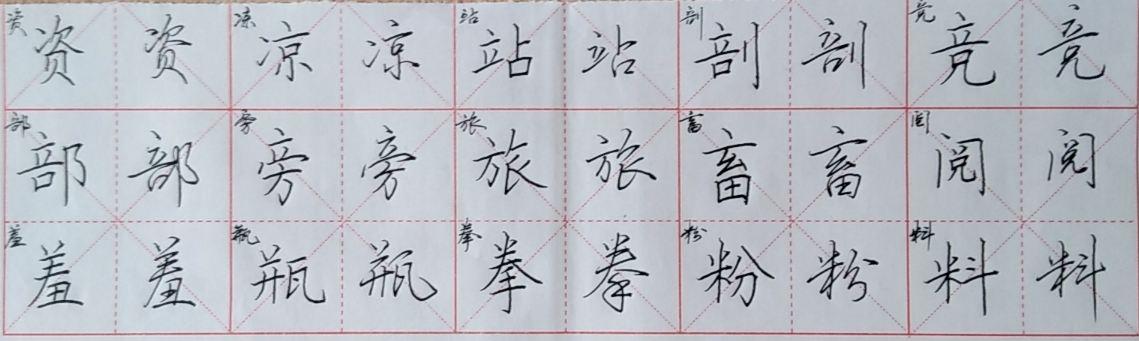 资 资 资 凉 凉 凉 站 站 站 剖 剖 剖 竞 竞 竞
部 部 部 旁 旁 旁 旅 旅 旅 畜 畜 畜 阅 阅 阅
羞 羞 羞 瓶 瓶 瓶 拳 拳 拳 粉 粉 粉 料 料 料